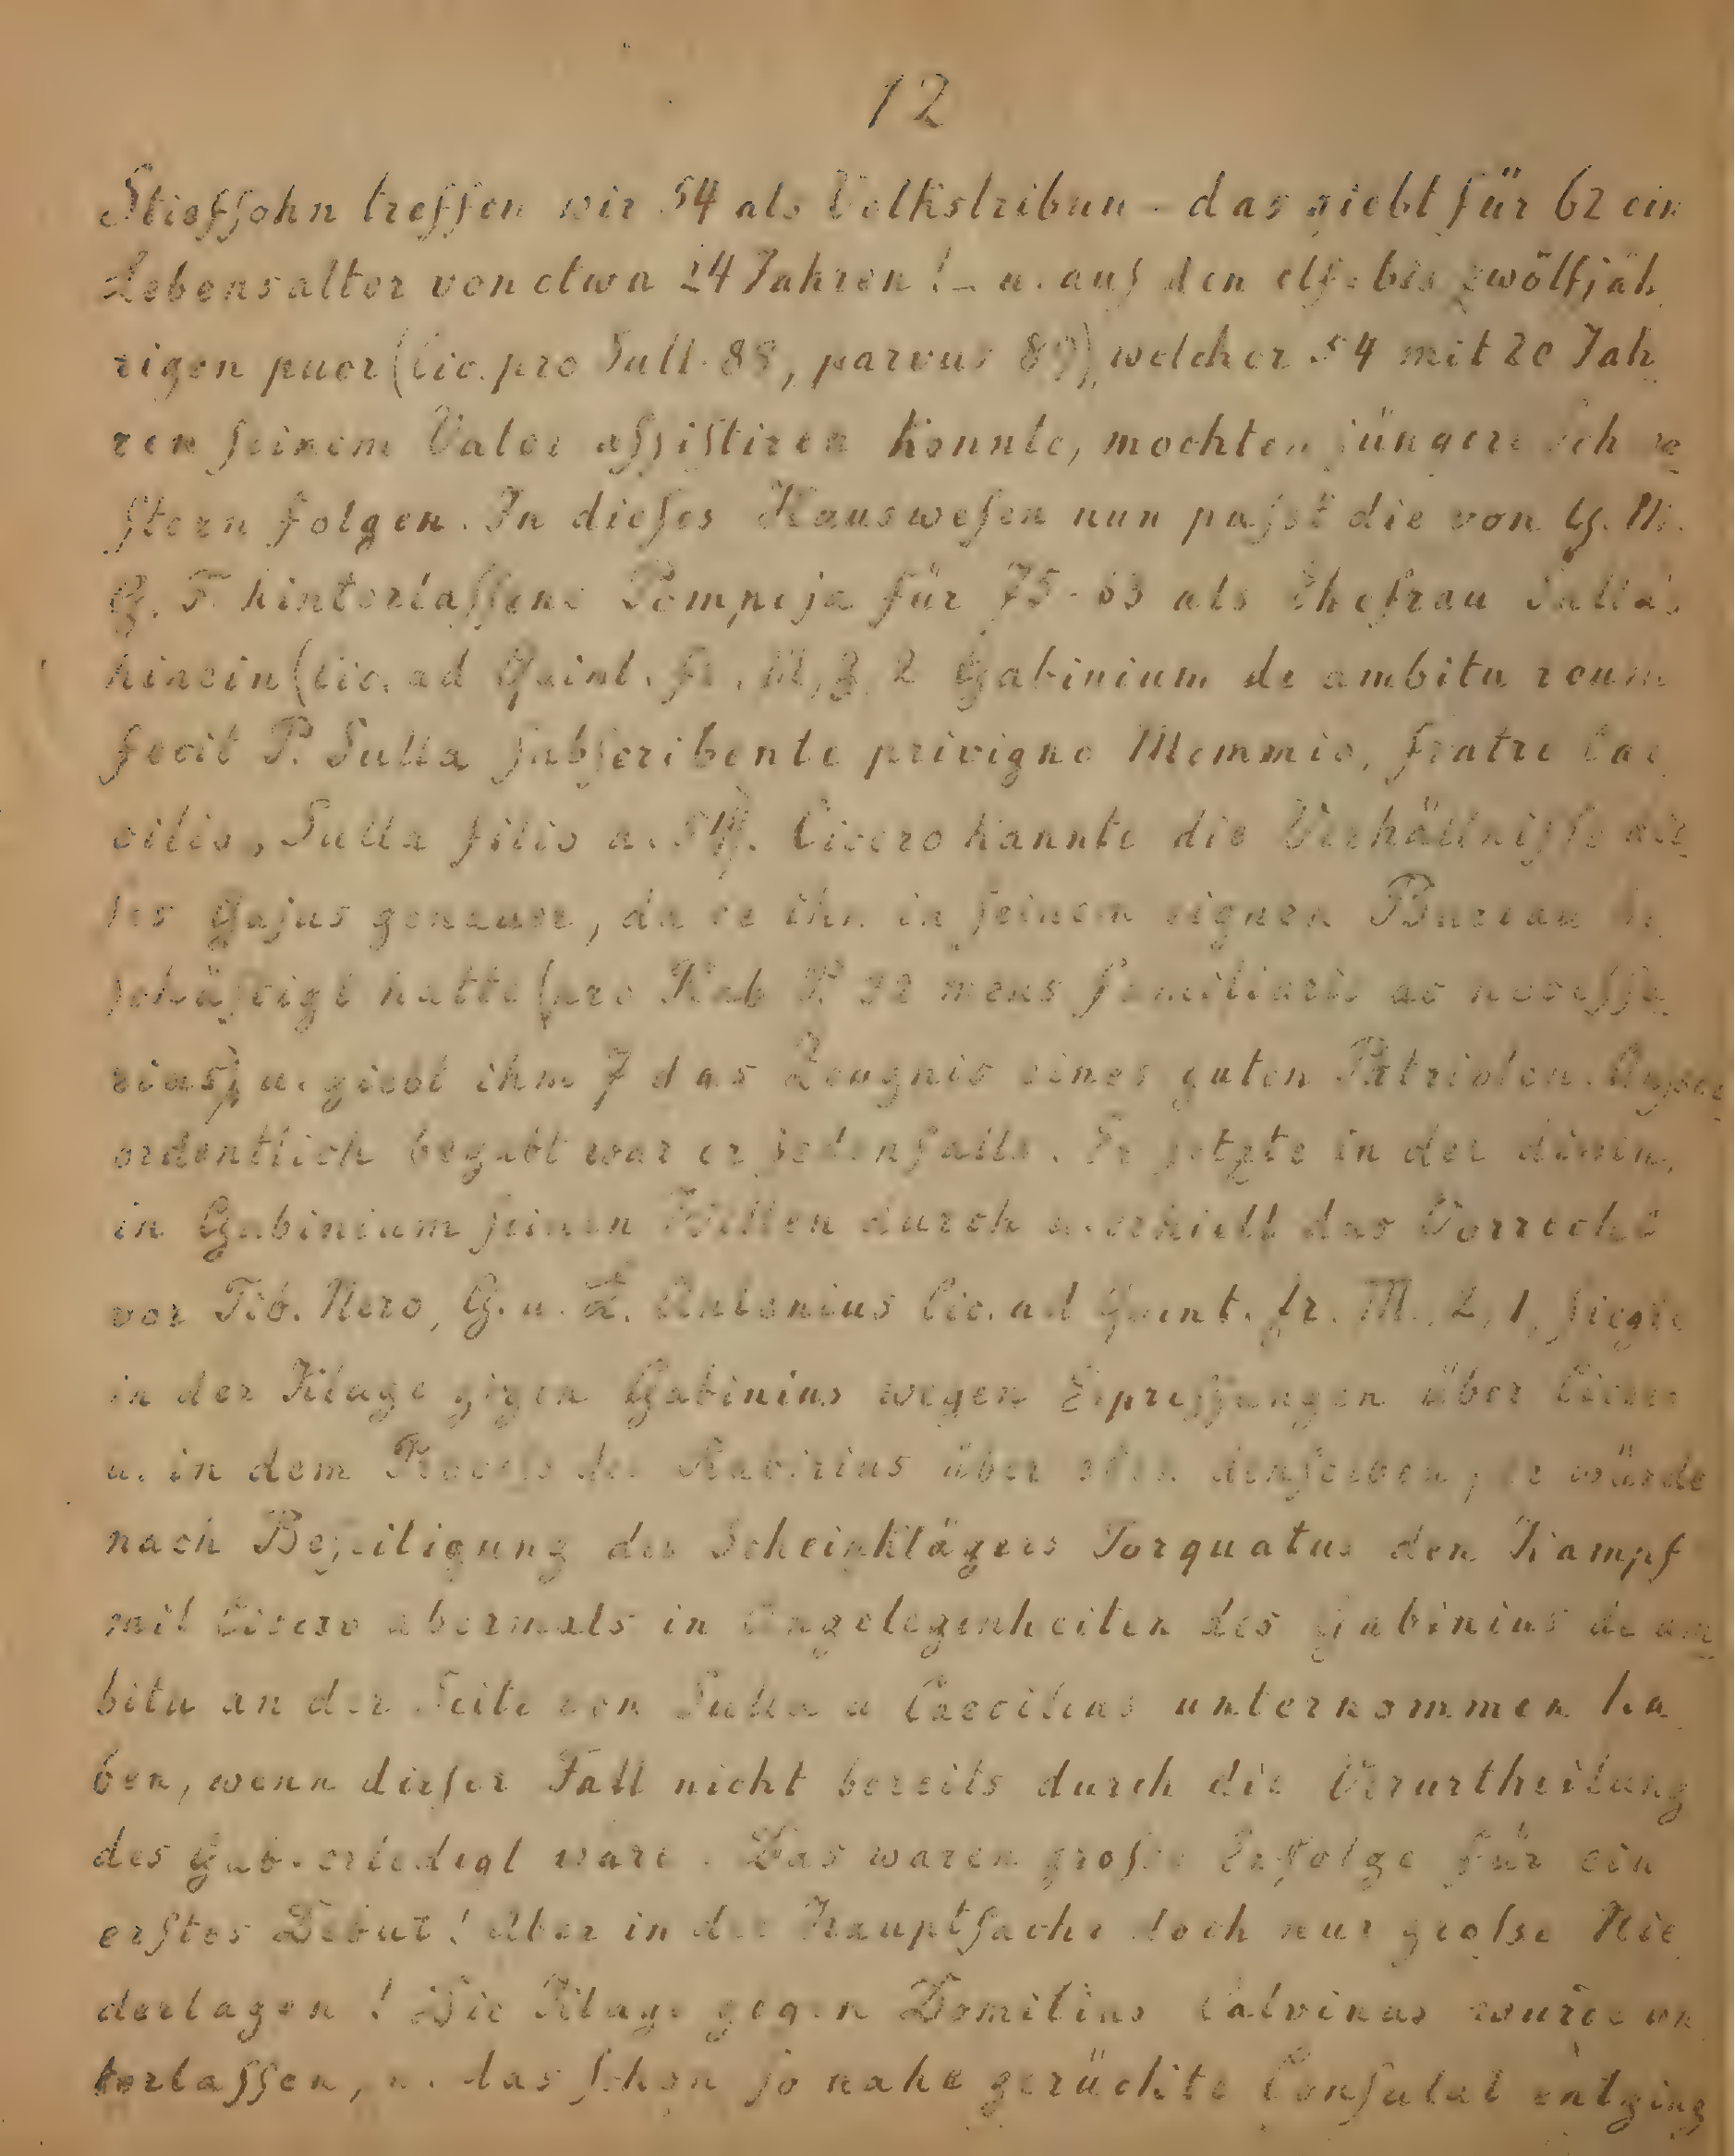 12
Stiefsohn treffen wir 54 als Volkstribun – das giebt für 62 ein
Lebensalter von etwa 24 Jahren! – u. auf den elf- bis zwölfjäh
rigen puer (Cic. pro Sull. 88, parvus 89), welcher 54 mit 20 Jah
ren seinem Vater assistiren konnte, mochten jüngere Schwe
stern folgen. In dieses Hauswesen nun passt die von G. M.
G. F. hinterlassene Pompeja für 75-63 als Ehefrau Sulla's
hinein (Cic. ad Quint. fr. III, 3, 2 Gabinium de ambitu reum
fecit P. Sulla subscribente privigno Memmio, fratre Cae
cilio, Sulla filio a. 54). Cicero kannte die Verhältnisse
Gajus genauer, da er ihn in seinem eignen Bureau be
schäftigt hatte (pro Rab P. 32 meus familiaris ac necessa
rius), u. giebt ihm 7 das Zeugnis eines guten Patrioten. Ausser
ordentlich begabt war er jedenfalls. Er setzte in der divin.
in Gabinium seinen Willen durch u. erhielt das Vorrecht
vor Tib. Nero, G. u. L. Antonius Cic. ad Quint. fr. III, 2, 1, siegte
in der Klage gegen Gabinius wegen Erpressungen über Cicero
u. in dem Process des Rabirius über eben denselben, er würde
nach Beseitigung des Scheinklägers Torquatus den Kampf
mit Cicero abermals in Angelegenheiten des Gabinius de am
bitu an der Seite von Sulla u Caecilius unternommen ha
ben, wenn dieser Fall nicht bereits durch die Verurtheilung
des Gab. erledigt wäre. Das waren grosse Erfolge für ein
erstes Debut! Aber in der Hauptsache doch nur grosse Nie
derlagen! Die Klage gegen Domitius Calvinus wurde un
terlassen, u. das schon so nahe gerückte Consulat entging